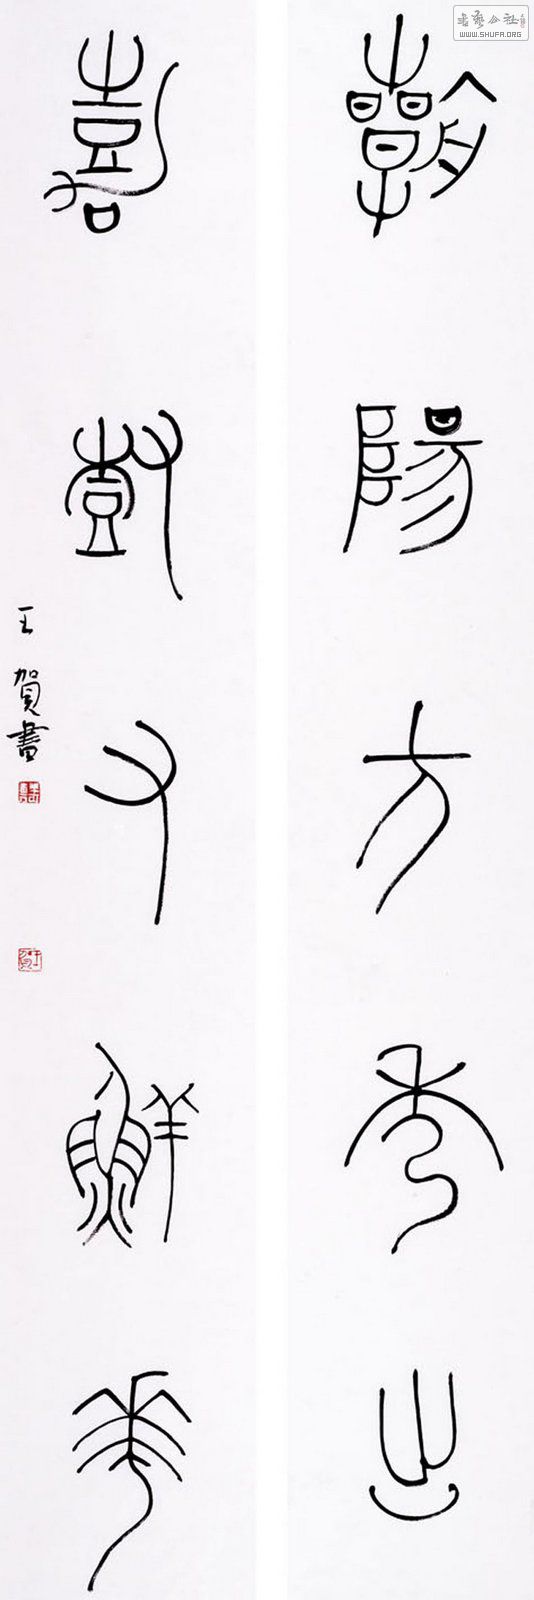 朝陽方秀出
嘉樹又鮮華
王賀書
書藝公社
WWW.SHUFA.ORG